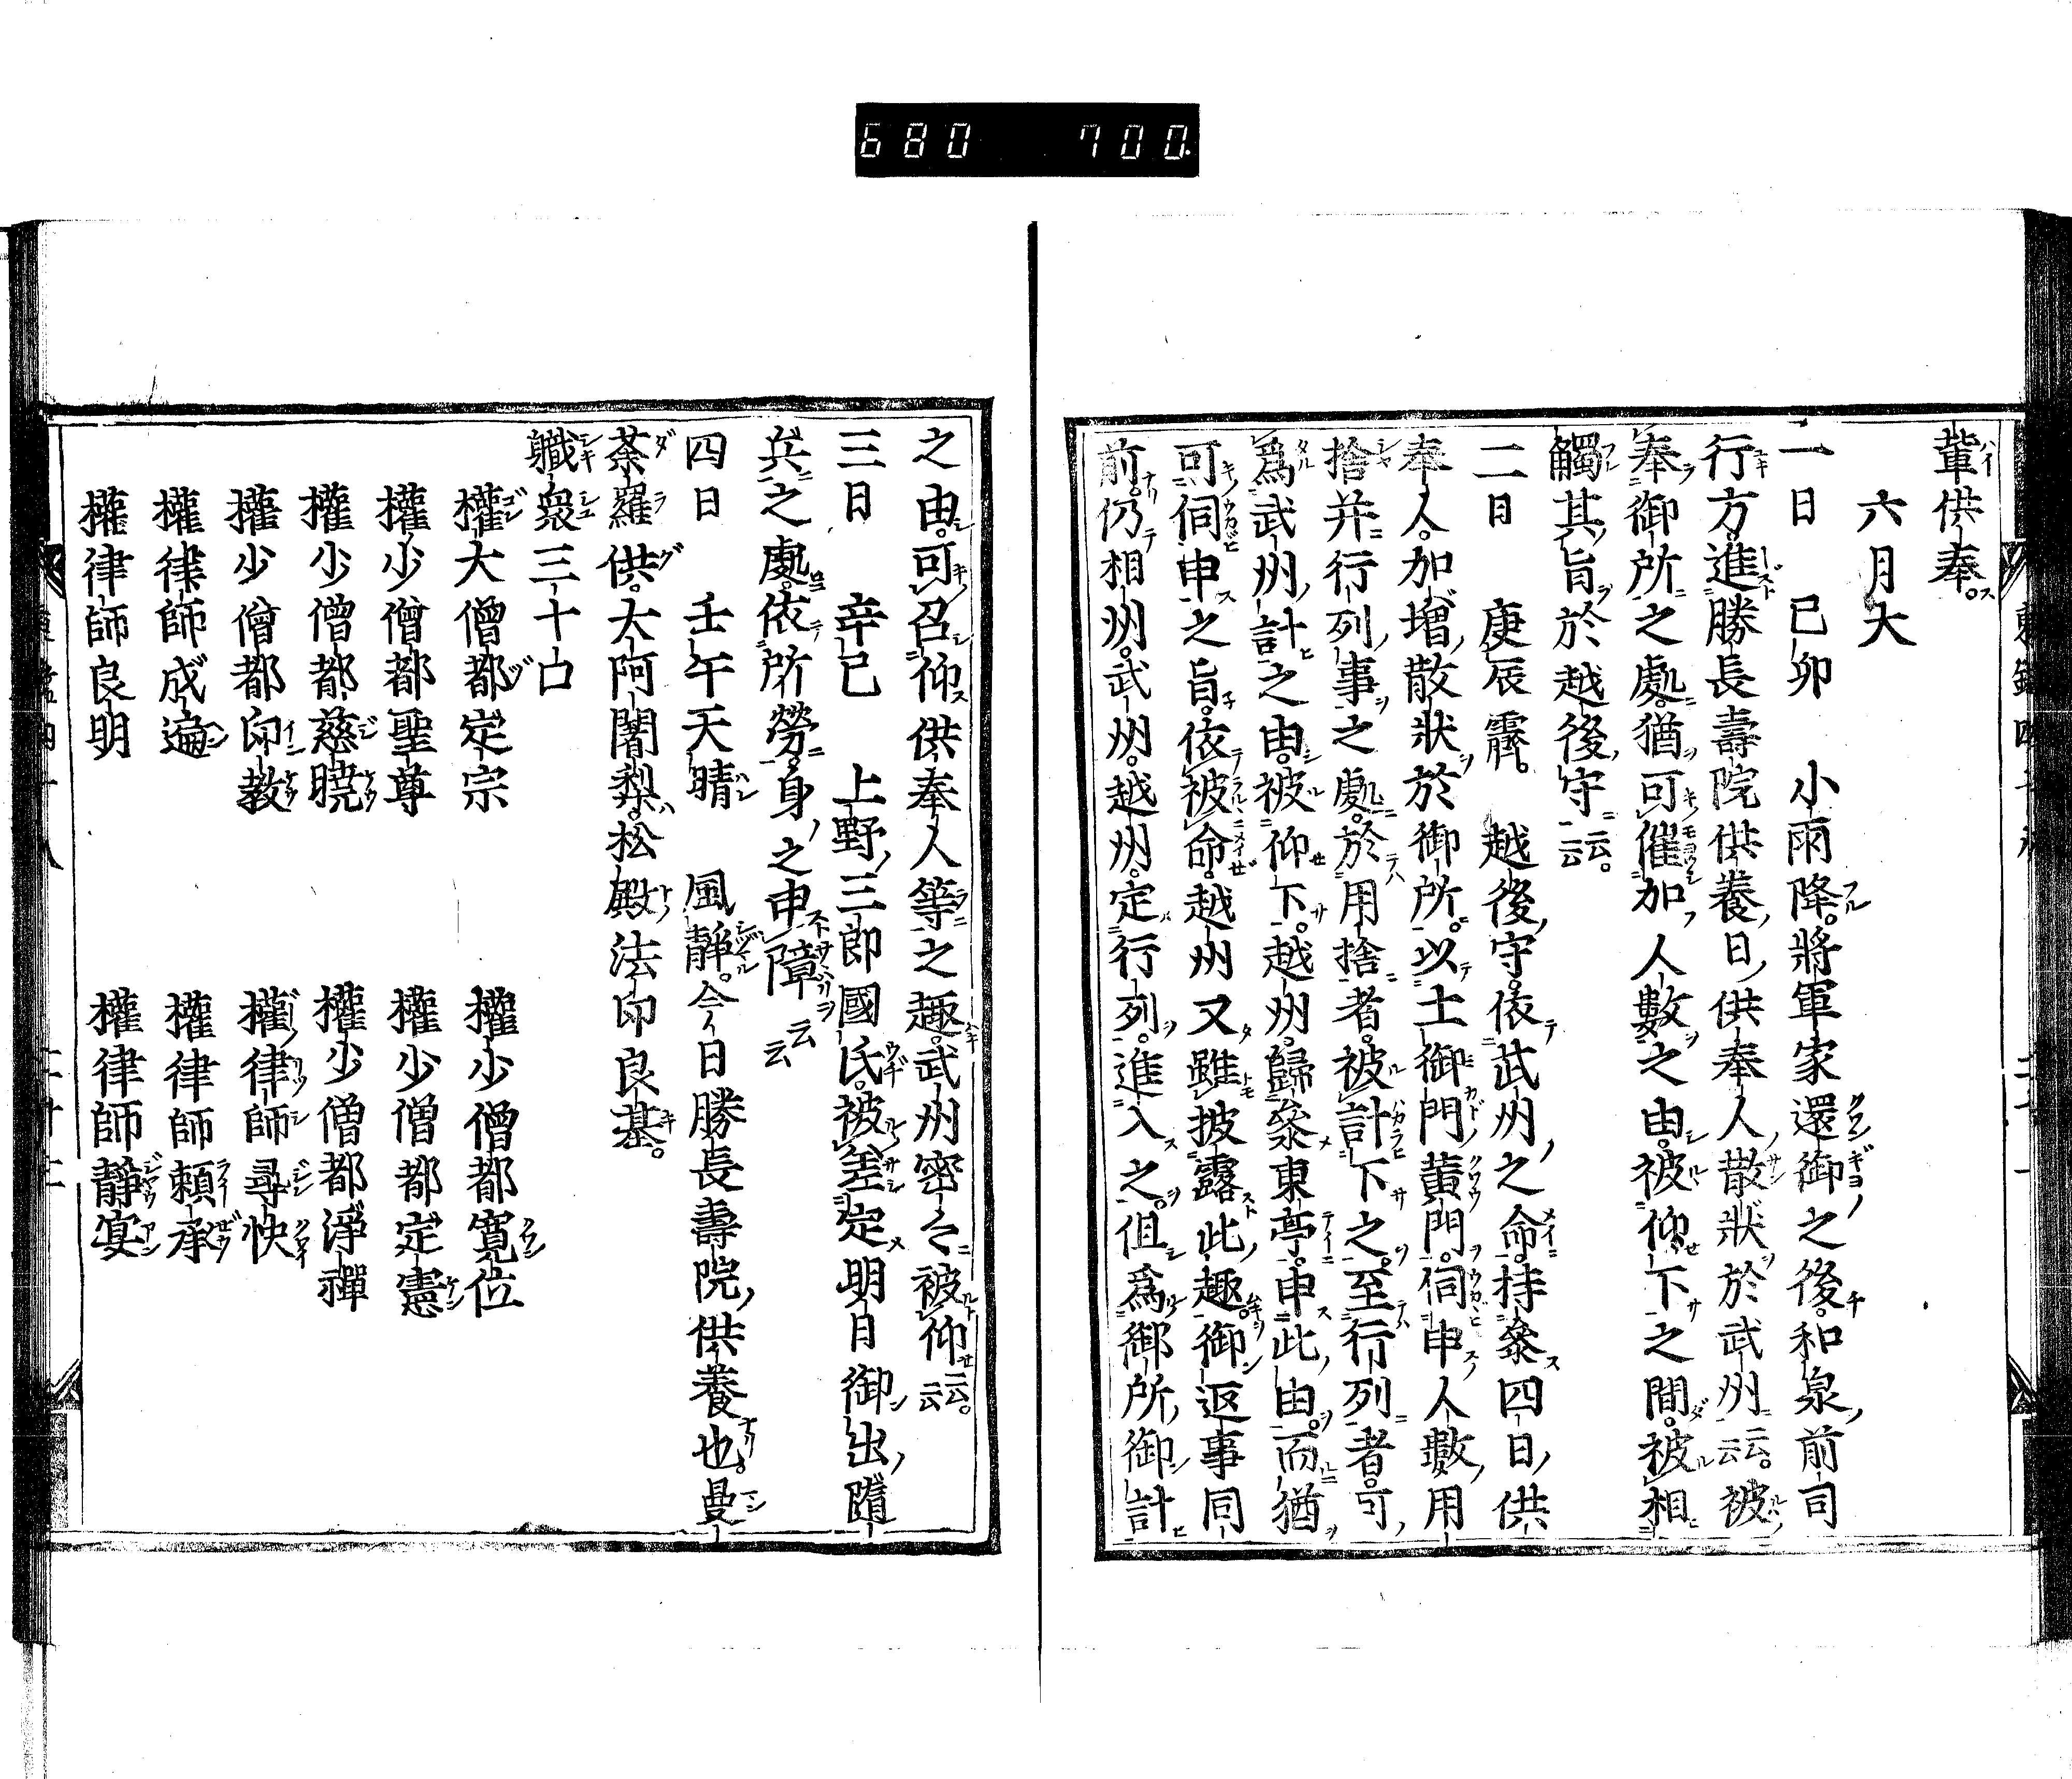 680 700
輩供奉。
六月大
一日 己卯 小雨降。將軍家還御之後。和泉前司
行方。進勝長壽院供養日供奉人散狀於武州云云。被
奉御所之處。猶可催加人數之由。被仰下之間。被相
觸其旨於越後守云云。
二日 庚辰 霽。 越後守。依武州之命。持參四日供
奉人。加増散狀於御所。以土御門黄門。伺申人數用
捨并行列事之處。於用捨者。被計下之。至行列者。可
爲武州計之由。被仰下。越州。歸參東亭。申此由。而猶
可伺申之旨。依被命。越州又雖披露此趣。御返事同
前。仍相州。武州。越州。定行列。進入之。但爲御所御計
之由。可召仰供奉人等之趣。武州密々被仰云云。
三日 辛巳 上野三郎國氏。被差定明日御出隨
兵之處。依所勞身之申障云云
四日 壬午天晴 風靜。今日勝長壽院供養也。曼
荼羅供。大阿闍梨。松殿法印良基。
職衆三十口
權大僧都定宗 權少僧都寛位
權少僧都聖尊 權少僧都定憲
權少僧都慈曉 權少僧都淨禪
權少僧都印教 權律師尋快
權律師成遍 權律師頼承
權律師良明 權律師靜宴